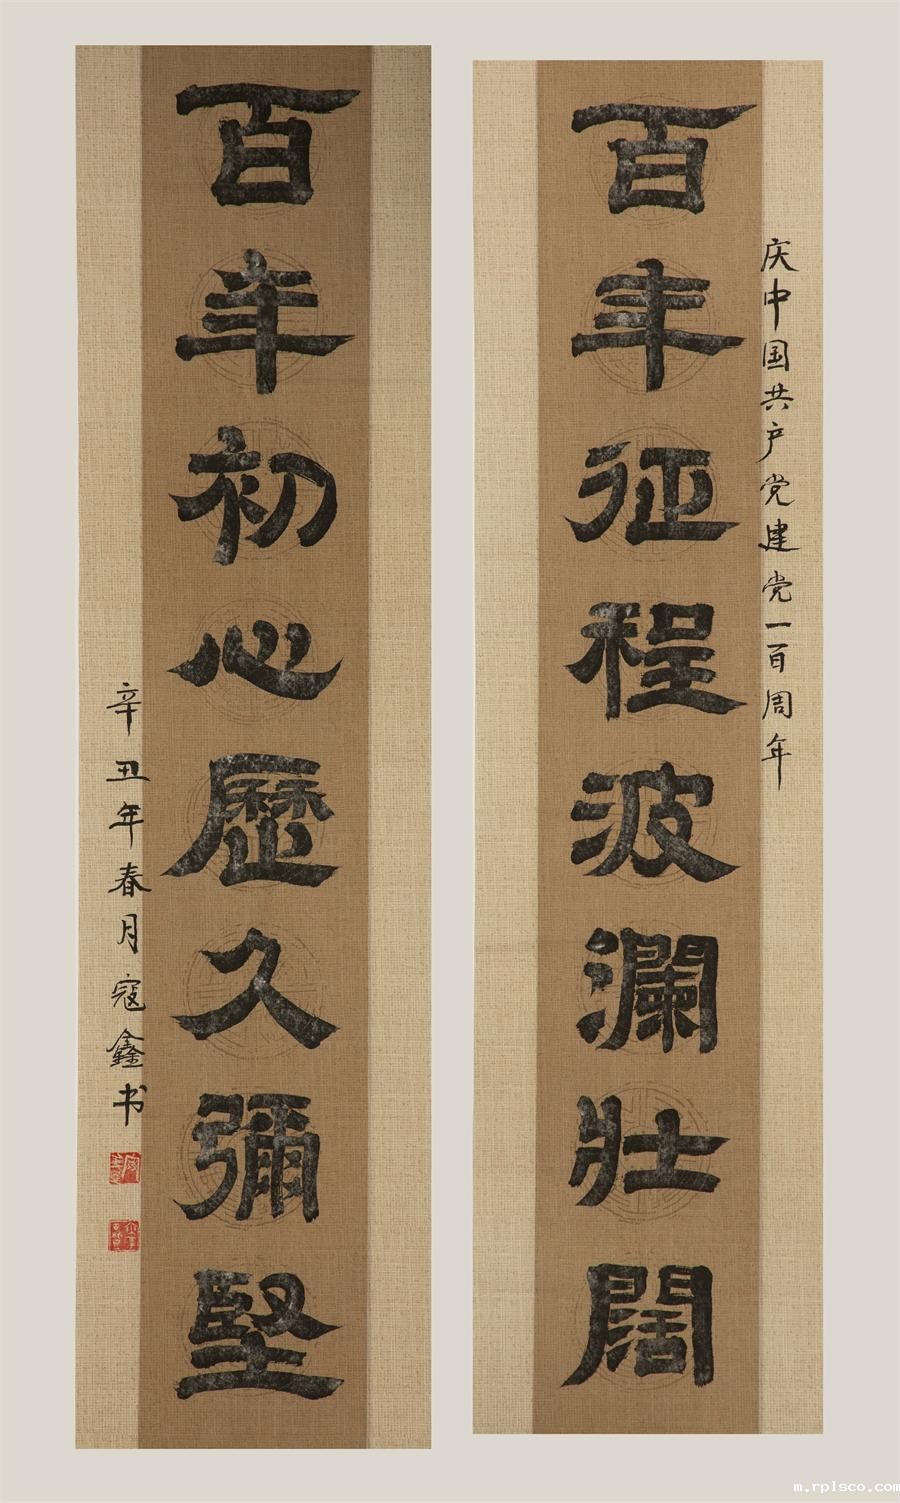 庆中国共产党建党一百周年
百年征程波瀾壯闊
百年初心歷久彌堅
辛丑年春月寇鑫书
m.rplsco.com